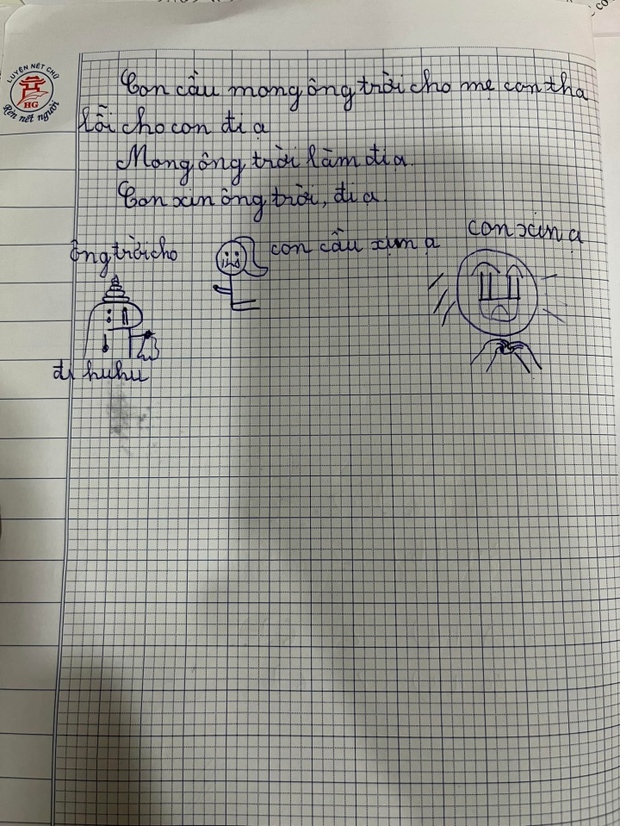 LUYỆN NÉT CHỮ
HG
Rèn nét người
Con cầu mong ông trời cho mẹ con tha
lỗi cho con đi ạ
Mong ông trời làm đi ạ.
Con xin ông trời, đi ạ.
ông trời cho
con cầu xin ạ
con xin ạ
đi huhu